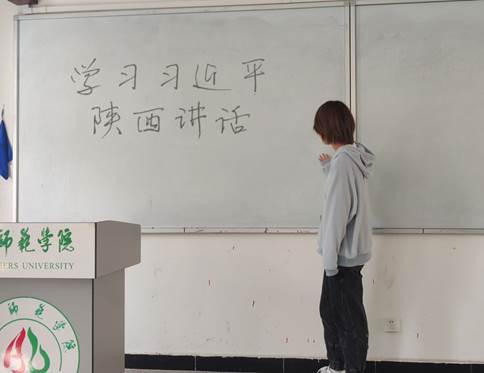 学习习近平
陕西讲话
师范学院
ERS UNIVERSITY
师范学院